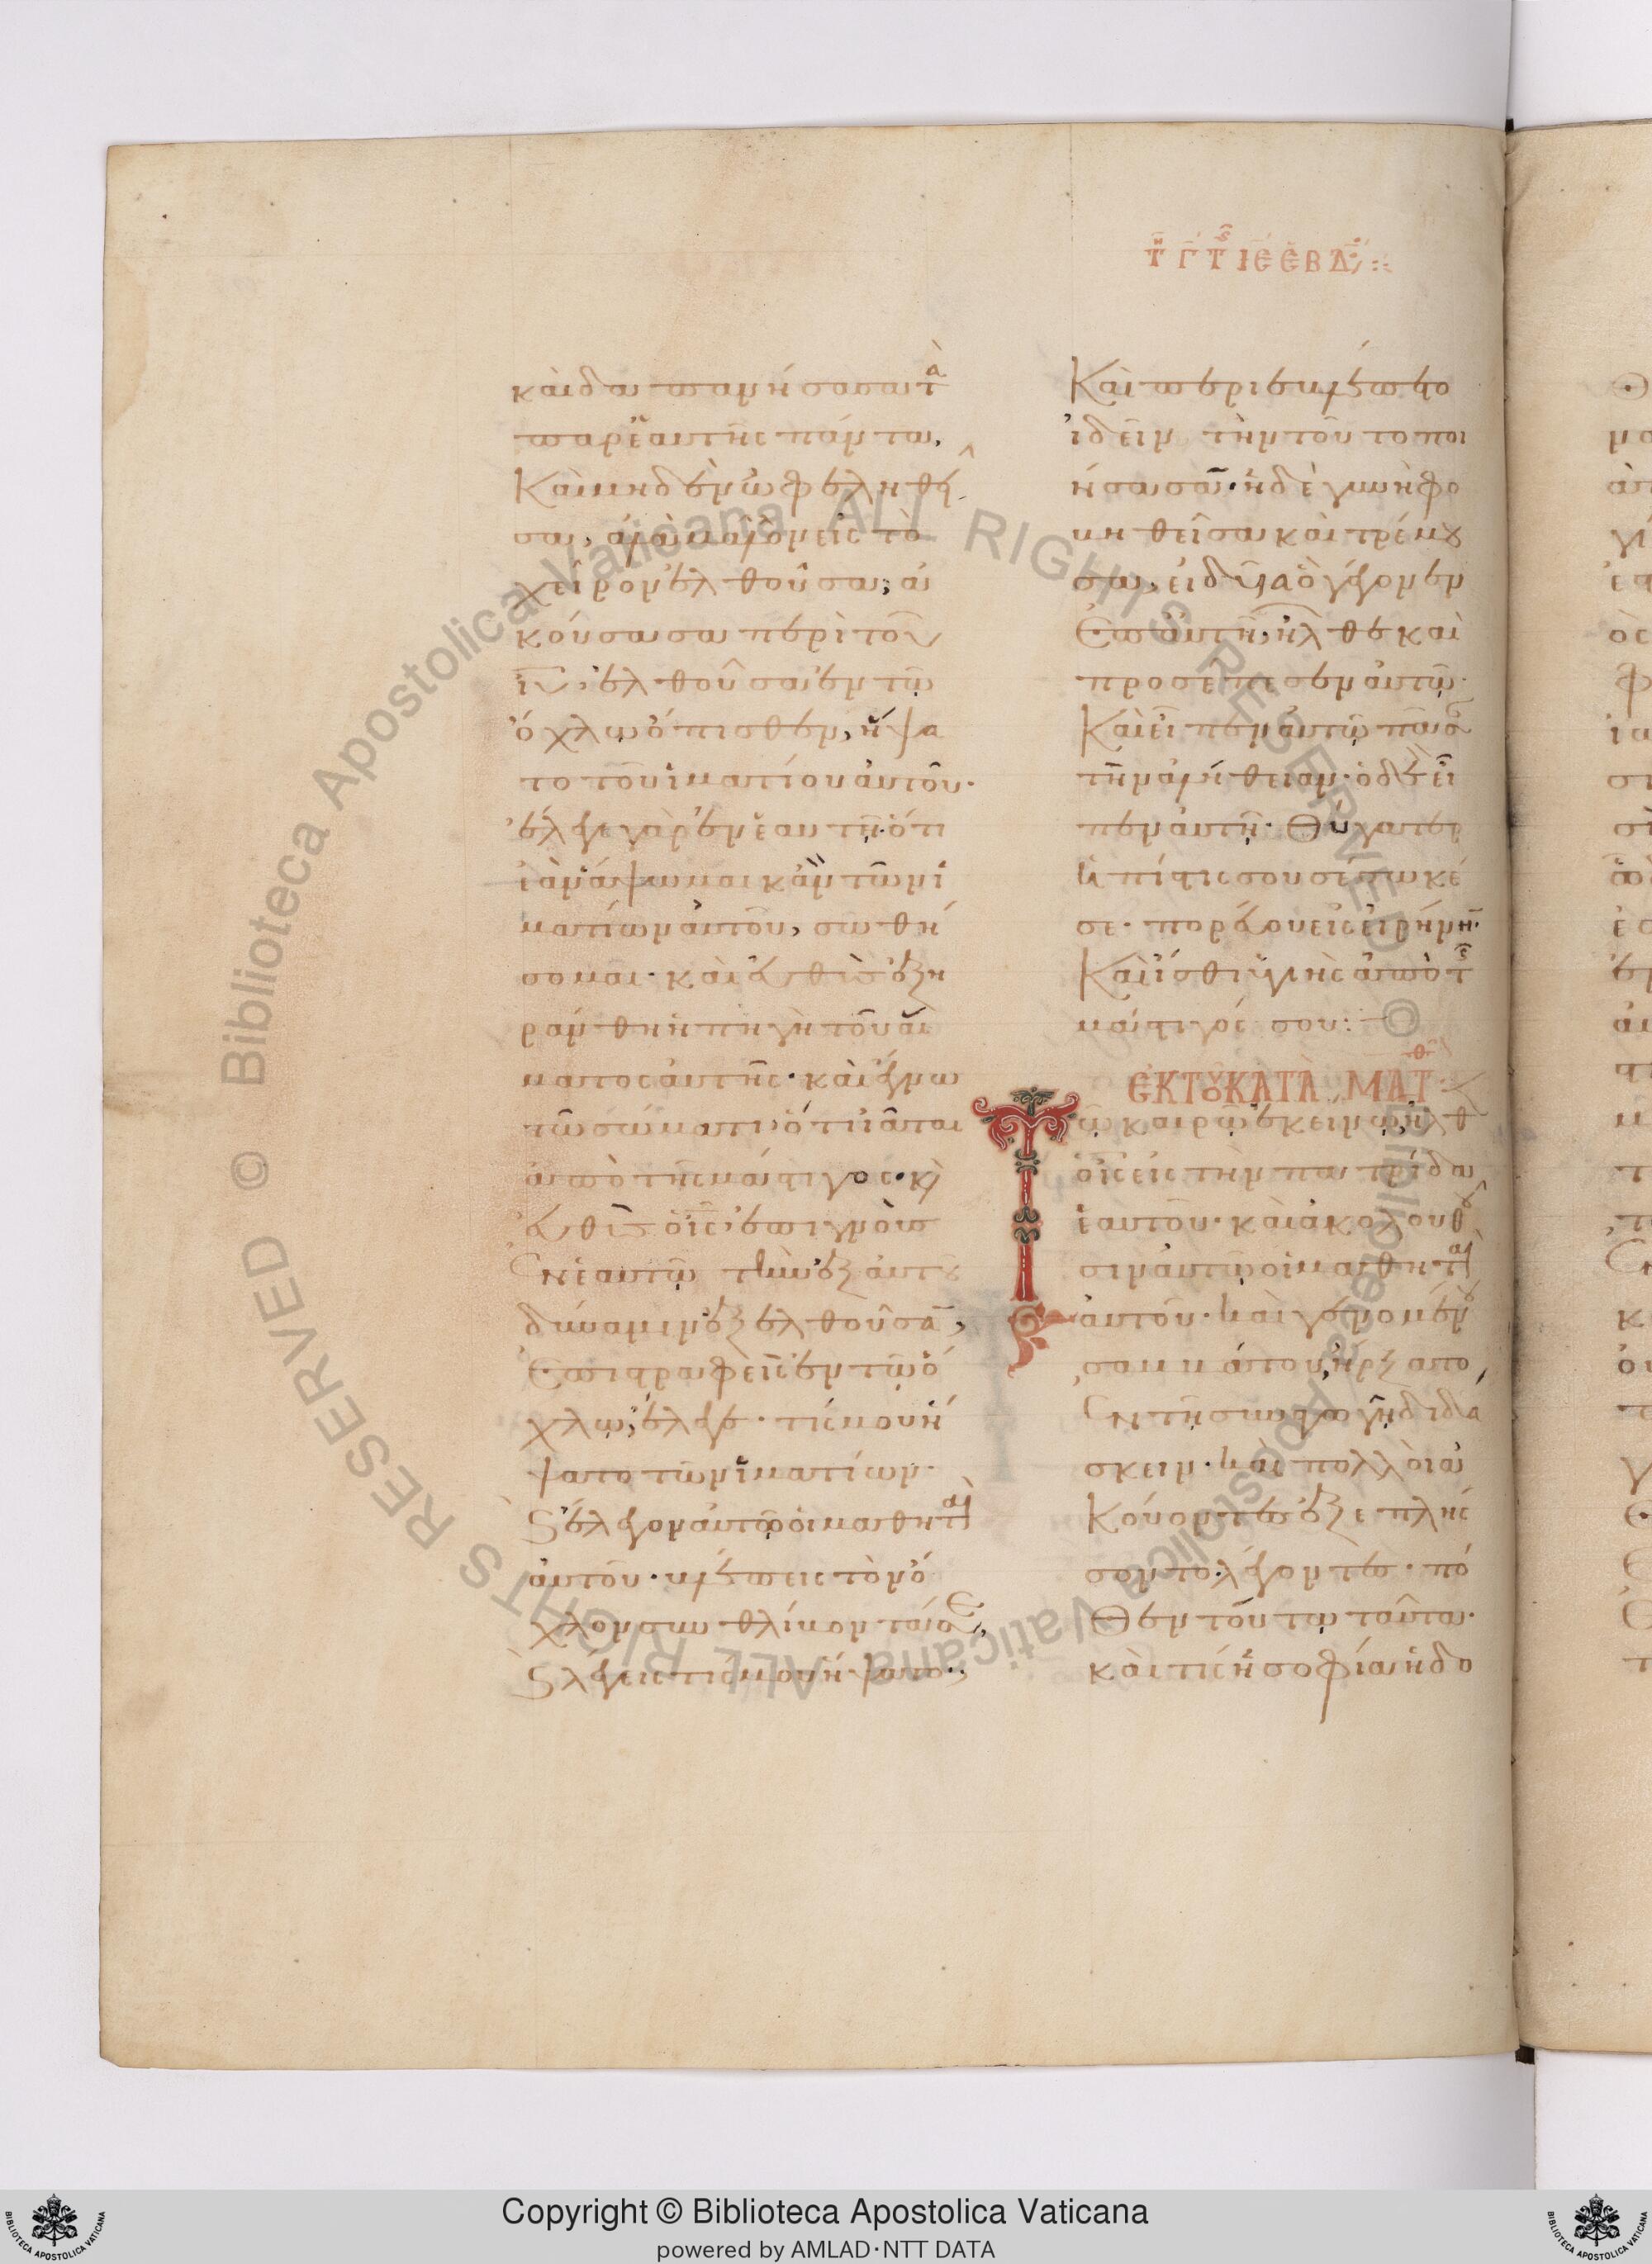 τη γ της ιε εβδ
και δαπανησασα τα
παρ εαυτης παντα,
Και μηδεν ωφεληθει
σα, αλλα μαλλον εις το
χειρον ελθουσα, α
κουσασα περι του
ιυ, ελθουσα εν τω
οχλω οπισθεν, ηψα
το του ιματιου αυτου·
ελεγε γαρ εν εαυτη· οτι
εαν αψωμαι καν των ι
ματιων αυτου, σωθη
σομαι· και ευθεως εξη
ρανθη η πηγη του αι
ματος αυτης· και εγνω
τω σωματι οτι ιαται
απο της μαστιγος· και
ευθεως ο ις επιγνους
εν εαυτω την εξ αυτου
δυναμιν εξελθουσαν,
Επιστραφεις εν τω ο
χλω, ελεγε· τις μου η
ψατο των ιματιων·
και ελεγον αυτω οι μαθηται
αυτου· βλεπεις τον ο
χλον συνθλιβοντα σε,
και λεγεις τις μου ηψατο;
Και περιεβλεπετο
ιδειν την τουτο ποι
ησασαν· η δε γυνη φο
βηθεισα και τρεμου
σα, ειδυια ο γεγονεν
Επ αυτη, ηλθε και
προσεπεσεν αυτω·
Και ειπεν αυτω πασαν
την αληθειαν· ο δε ει
πεν αυτη· Θυγατερ
η πιστις σου σεσωκε
σε· πορευου εις ειρηνην·
Και ισθι υγιης απο της
μαστιγος σου:
ΕΚ ΤΟΥ ΚΑΤΑ ΜΑΤΘ
Τω καιρω εκεινω, ηλθεν
ο ις εις την πατριδα
εαυτου· και ακολουθου
σιν αυτω οι μαθηται
αυτου· Και γενομενου
σαββατου, ηρξατο,
εν τη συναγωγη διδα
σκειν· Και πολλοι α
κουοντες εξεπλησ
σοντο λεγοντες· πο
θεν τουτω ταυτα·
και τις η σοφια η δο
Copyright © Biblioteca Apostolica Vaticana
powered by AMLAD·NTT DATA